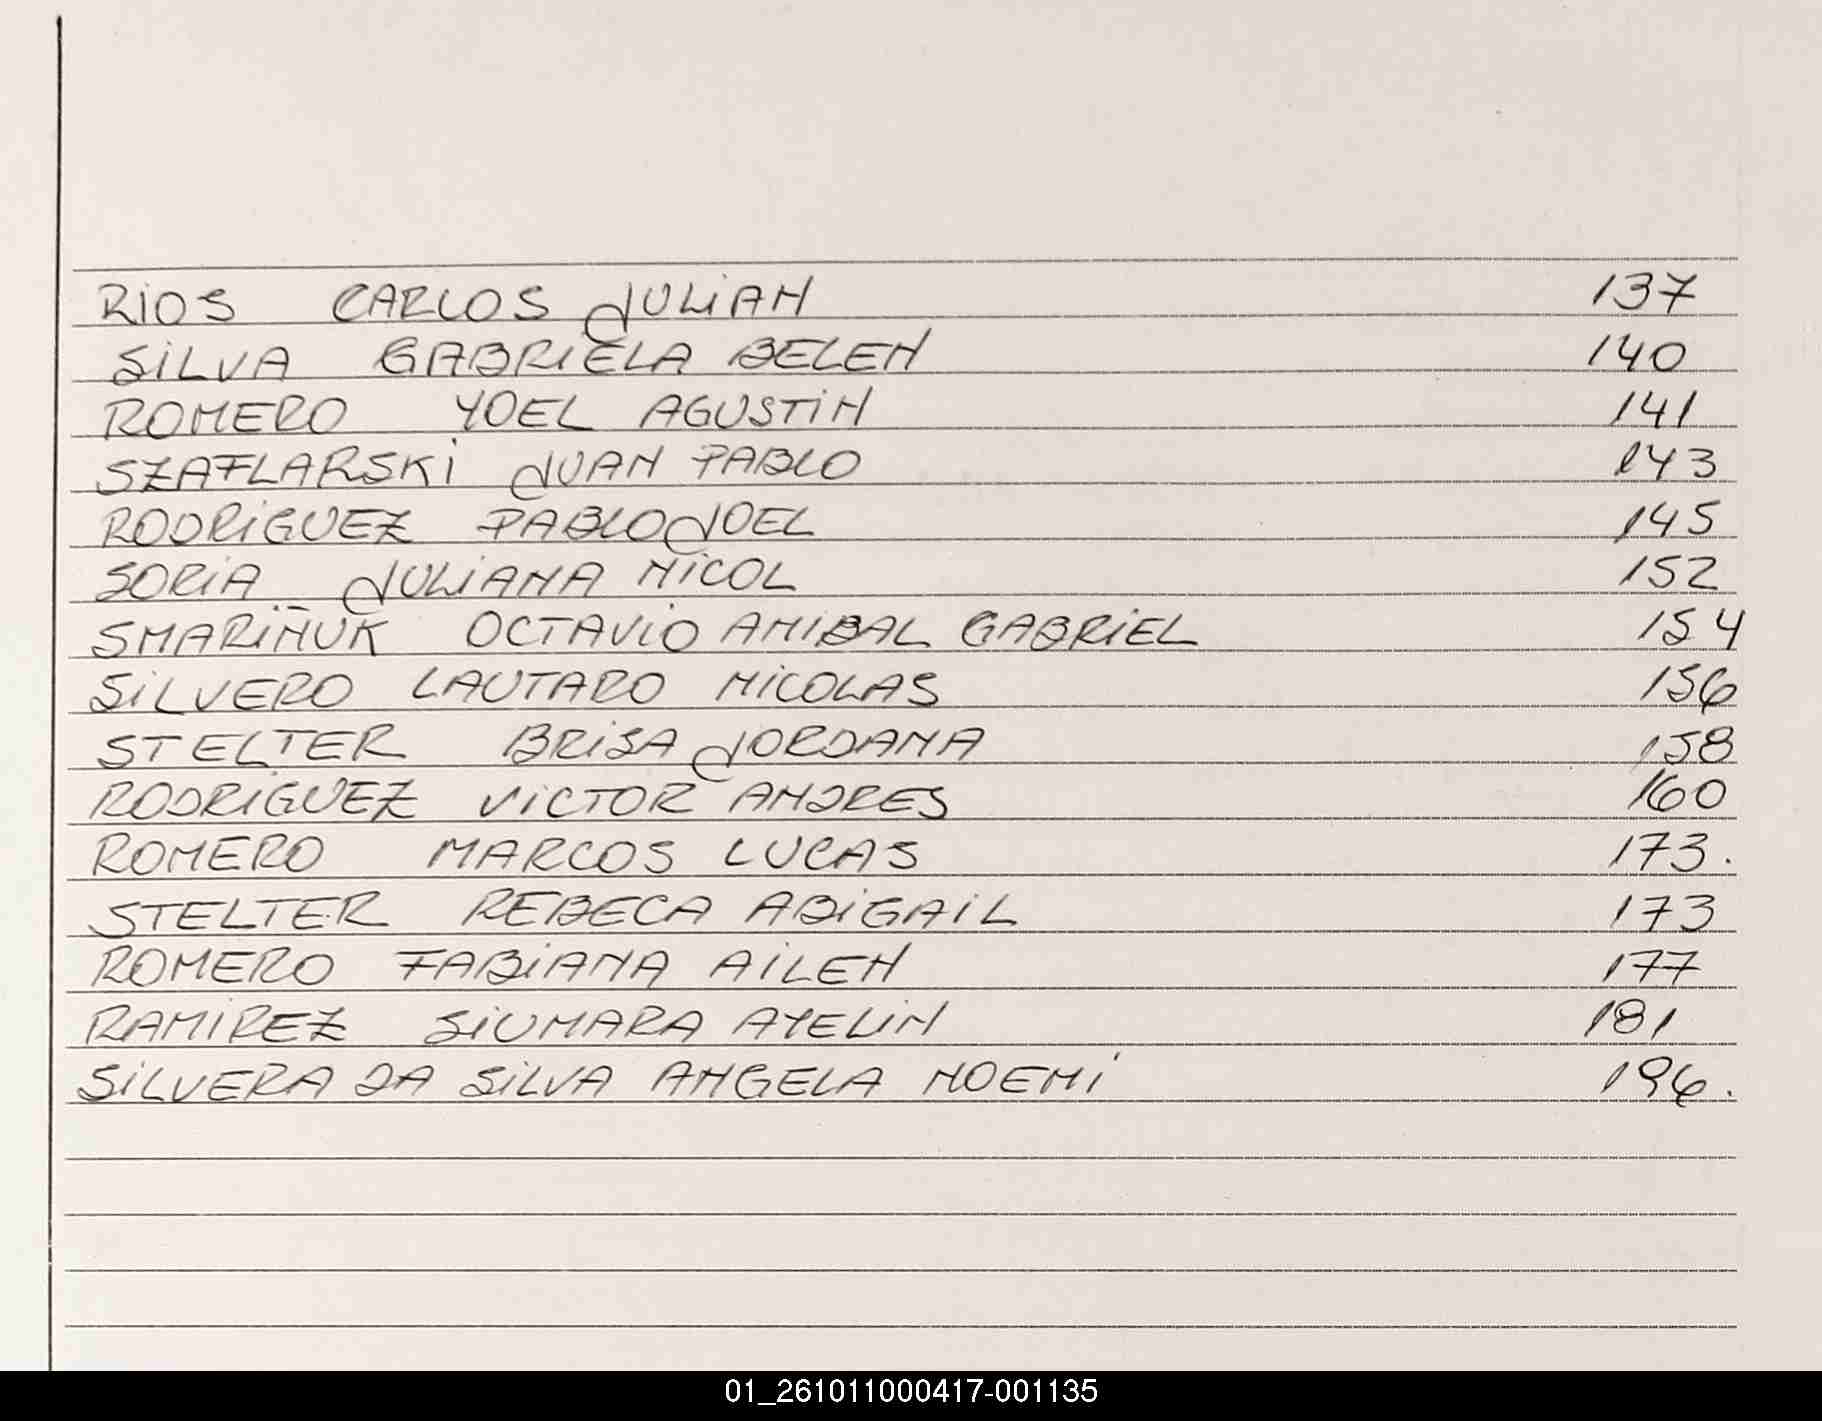 RIOS CARLOS JULIAN 137
SILVA GABRIELA BELEN 140
ROMERO YOEL AGUSTIN 141
SZAFLARSKI JUAN PABLO 143
RODRIGUEZ PABLO JOEL 145
SORIA JULIANA NICOL 152
SMARIÑUK OCTAVIO ANIBAL GABRIEL 154
SILVERO LAUTARO NICOLAS 156
STELTER BRISA JORDANA 158
RODRIGUEZ VICTOR ANDRES 160
ROMERO MARCOS LUCAS 173.
STELTER REBECA ABIGAIL 173
ROMERO FABIANA AILEN 177
RAMIREZ SIUMARA AYELIN 181
SILVERA DA SILVA ANGELA NOEMI 196.
01_261011000417-001135